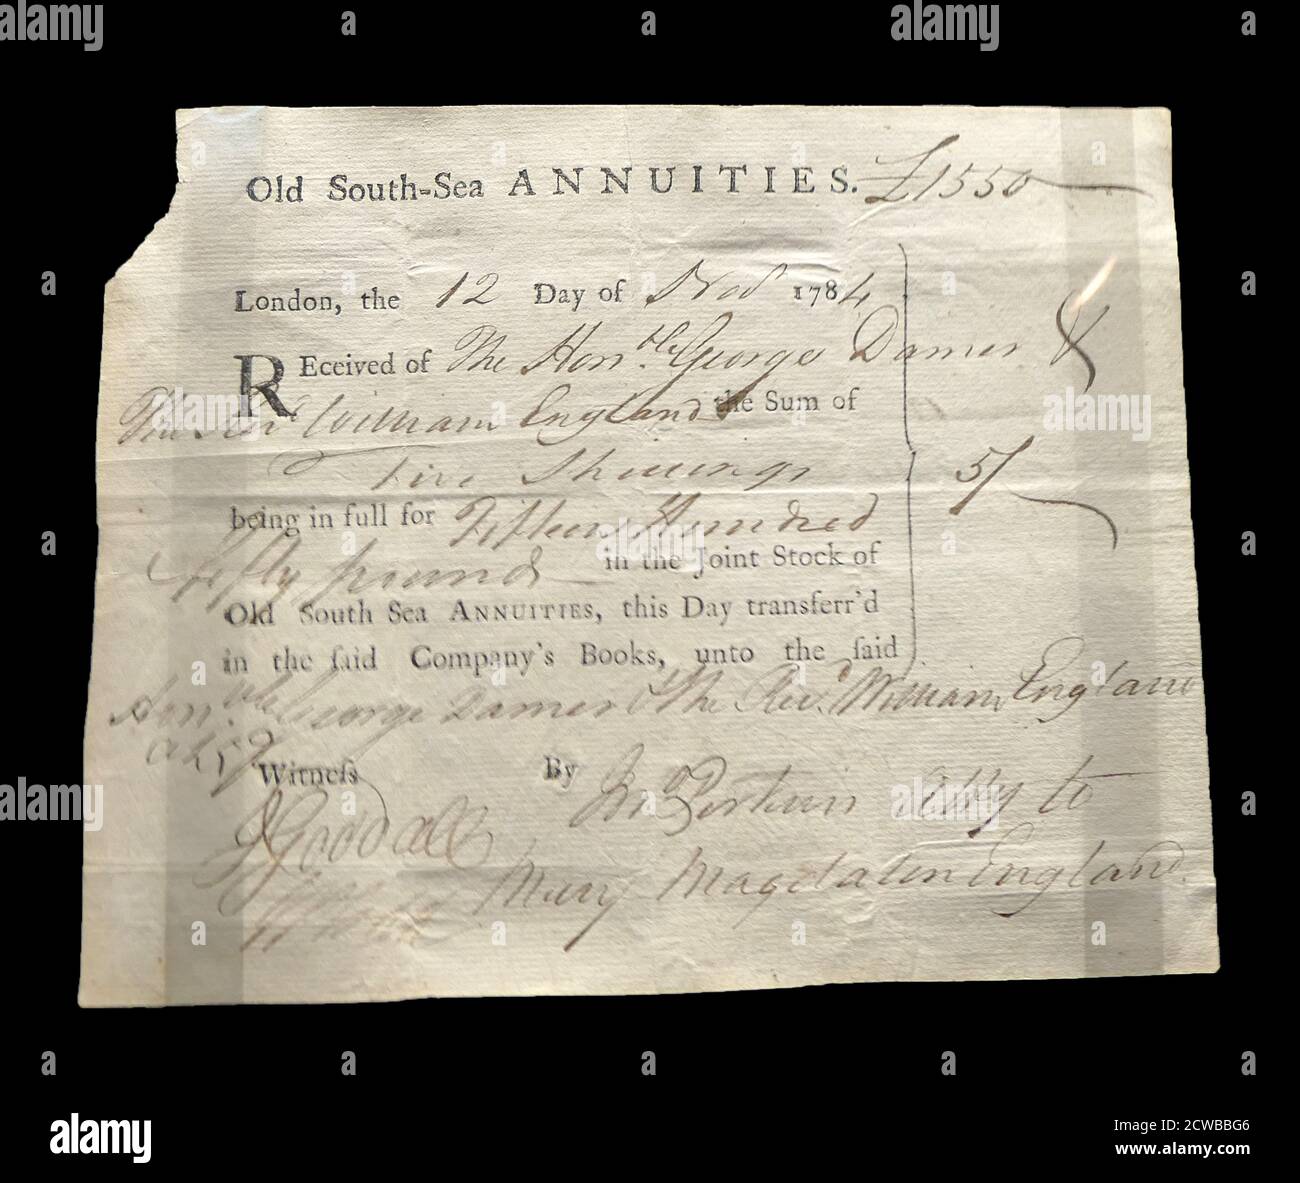 Old South-Sea ANNUITIES. £1550
London, the 12 Day of Nov 1784
REceived of The Honble. George Damer &
The Revd William England the Sum of
Five Shillings 5/
being in full for Fifteen Hundred
& fifty pounds in the Joint Stock of
Old South Sea ANNUITIES, this Day transferr'd
in the ſaid Company's Books, unto the ſaid
Honble. George Damer & The Revd. William England
Witneſs By Jno Perkins Atty to
J Goodall
Mary Magdalen England.
alamy
Image ID: 2CWBBG6
www.alamy.com